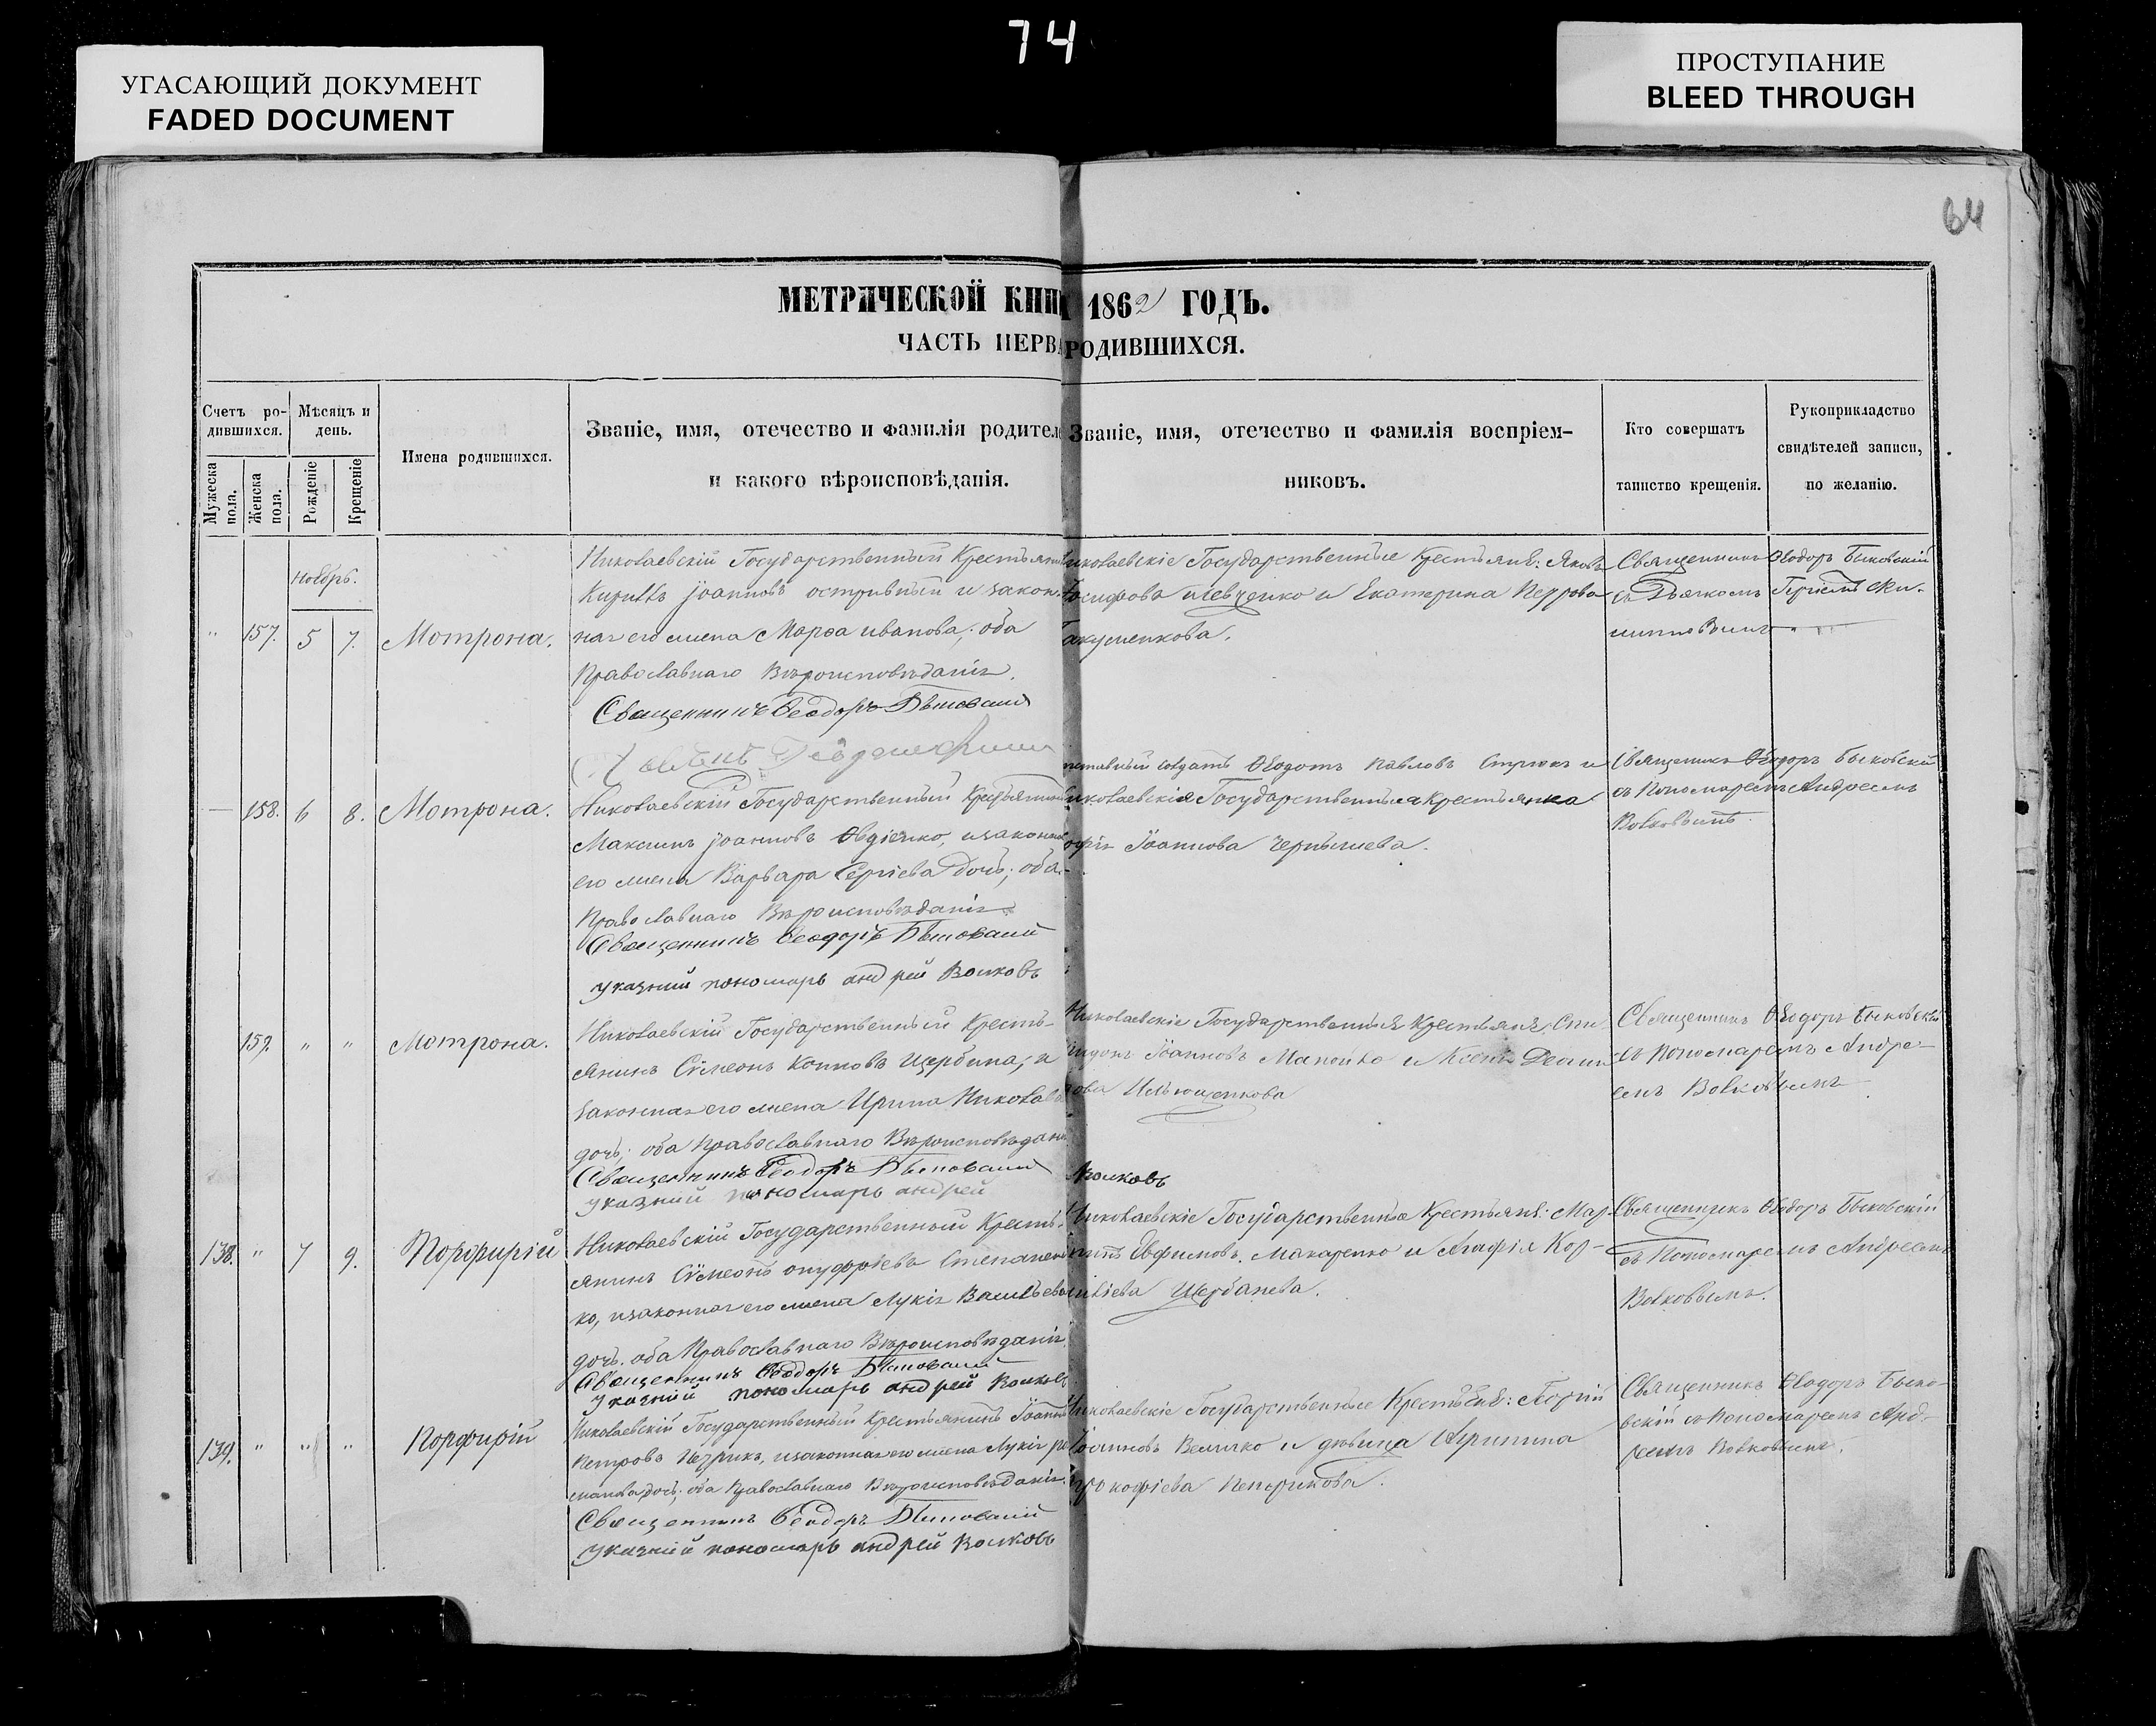 74
УГАСАЮЩИЙ ДОКУМЕНТ
FADED DOCUMENT
ПРОСТУПАНИЕ
BLEED THROUGH
64
МЕТРИЧЕСКОЙ КНИ 1862 ГОДЪ.
ЧАСТЬ ПЕРВА РОДИВШИХСЯ.
Счетъ ро-
дившихся.
Мѣсяцъ и
день.
Мужеска
пола.
Женска
пола.
Рожденіе
Крещеніе
Имена родившихся.
Званіе, имя, отечество и фамилія родител
и какого вѣроисповѣданія.
Званіе, имя, отечество и фамилія воспріем-
никовъ.
Кто совершатъ
таинство крещенія.
Рукоприкладство
свидѣтелей записи,
по желанію.
Ноябрь.
" 157. 5 7. Мотрона.
Николаевскій Государственный Крестьянин
Кириллъ Іоанновъ и закон-
ная его жена Марѳа Иванова; оба
Православнаго Вѣроисповѣданія.
Священникъ Ѳеодоръ Быковскій
иколаевскіе Государственные Крестьяне: Яковъ
Іосифовъ Шевченко и Екатерина Петрова
акуменкова.
Священникъ Ѳеодоръ Быковскій
съ Дьячкомъ
158. 6 8. Мотрона.
Николаевскій Государственный Крестьянинъ
Максимъ Іоанновъ Овдіенко, и законная
его жена Варвара Сергіева дочь; оба
Православнаго Вѣроисповѣданія.
Священникъ Ѳеодоръ Быковскій
указний пономарь андрей Волковъ
солдатъ Ѳеодотъ Павловъ и
иколаевская Государственная крестьянка
офія Іоаннова Чернышева.
Священникъ Ѳеодоръ Быковскій
съ Пономаремъ Андреемъ
Волковымъ.
159. " " Мотрона.
Николаевскій Государственный Кресть-
янинъ Сѵмеонъ Кононовъ Щербина, и
законная его жена Ирина Николаева
дочь; оба Православнаго Вѣроисповѣдані
Священникъ Ѳеодоръ Быковскій
указний пономарь андрей Волковъ
Николаевскіе Государственные Крестьяне: Спи-
ридонъ Іоанновъ Манойло и Ксенія
ова Ильющенкова
Священникъ Ѳеодоръ Быковскій
съ Пономаремъ Андре-
емъ Волковымъ
138. " 7 9. Порфирій
Николаевскій Государственный Кресть-
янинъ Сѵмеонъ Онуфріевъ Степанен
ко, и законная его жена Лукія Васильева
дочь. оба Православнаго Вѣроисповѣданія.
Священникъ Ѳеодоръ Быковскій
указний пономарь андрей Волковъ
Николаевскіе Государственные Крестьяне: Мар-
Евфимовъ Макаренко и Агафія Кор-
иліева Щербанева.
Священникъ Ѳеодоръ Быковскій
съ Пономаремъ Андреемъ
Волковымъ.
139. " " " Порфирій
Николаевскій Государственный Крестьянинъ Іоаннъ
Петровъ и законная его жена Лукія Ро
манова дочь; оба Православнаго Вѣроисповѣданія.
Священникъ Ѳеодоръ Быковскій
указний пономарь андрей Волковъ
Николаевскіе Государственные Крестьяне: Георгій
Іоанновъ Величко и дѣвица Агрипина
рокофіева
Священникъ Ѳеодоръ Быко-
вскій съ Пономаремъ Анд-
реемъ Волковымъ.